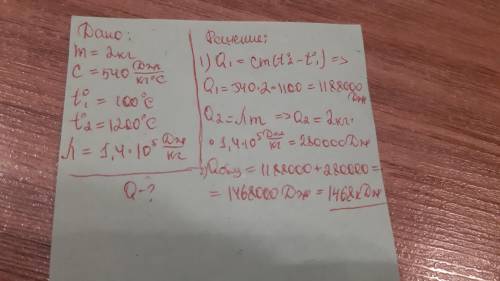 Дано:
m = 2кг
C = 540 Дж/кг°C
t°1 = 100°C
t°2 = 1200°C
Л = 1,4·10⁵ Дж/кг
Q-?
Решение:
1) Q1 = cm(t°2 - t°1) =>
Q1 = 540·2·1100 = 1188000 Дж
Q2 = Лm => Q2 = 2кг·
· 1,4·10⁵ Дж/кг = 280000 Дж
3) Qобщ = 1188000 + 280000 =
= 1468000 Дж = 1468 кДж